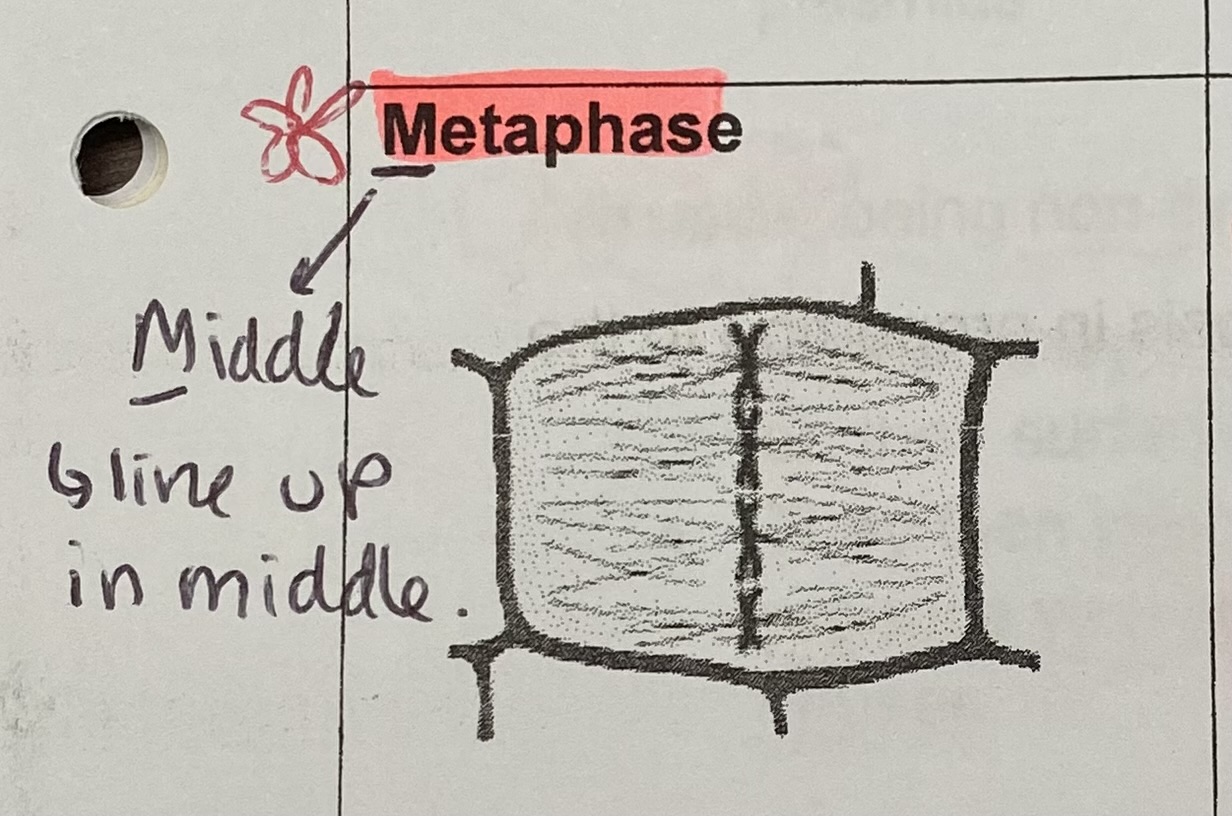 Metaphase
Middle
↳ line up
in middle.